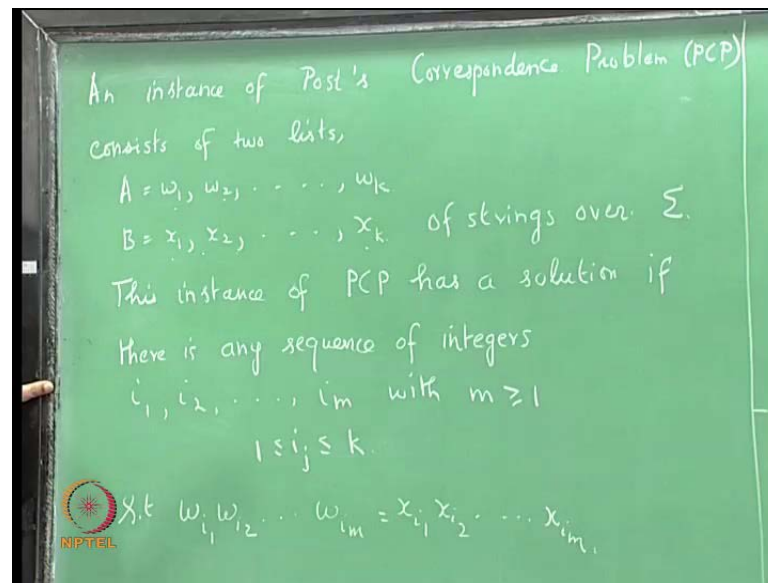 An instance of Post's Correspondence Problem (PCP)
consists of two lists,
A = w₁, w₂, . . . . ., wₖ
B = x₁, x₂, . . . , xₖ of strings over Σ.
This instance of PCP has a solution if
there is any sequence of integers
i₁, i₂, . . ., iₘ with m ≥ 1
1 ≤ iⱼ ≤ k.
S.t w_{i₁} w_{i₂} . . . w_{iₘ} = x_{i₁} x_{i₂} . . . . x_{iₘ}.
NPTEL